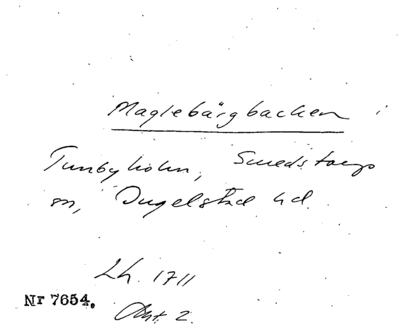 Maglebärgbacken
Tunbyholm, Smedstorps
sn, Ingelstad hd.
Lh. 1711
Nr 7654.
Akt. 2.